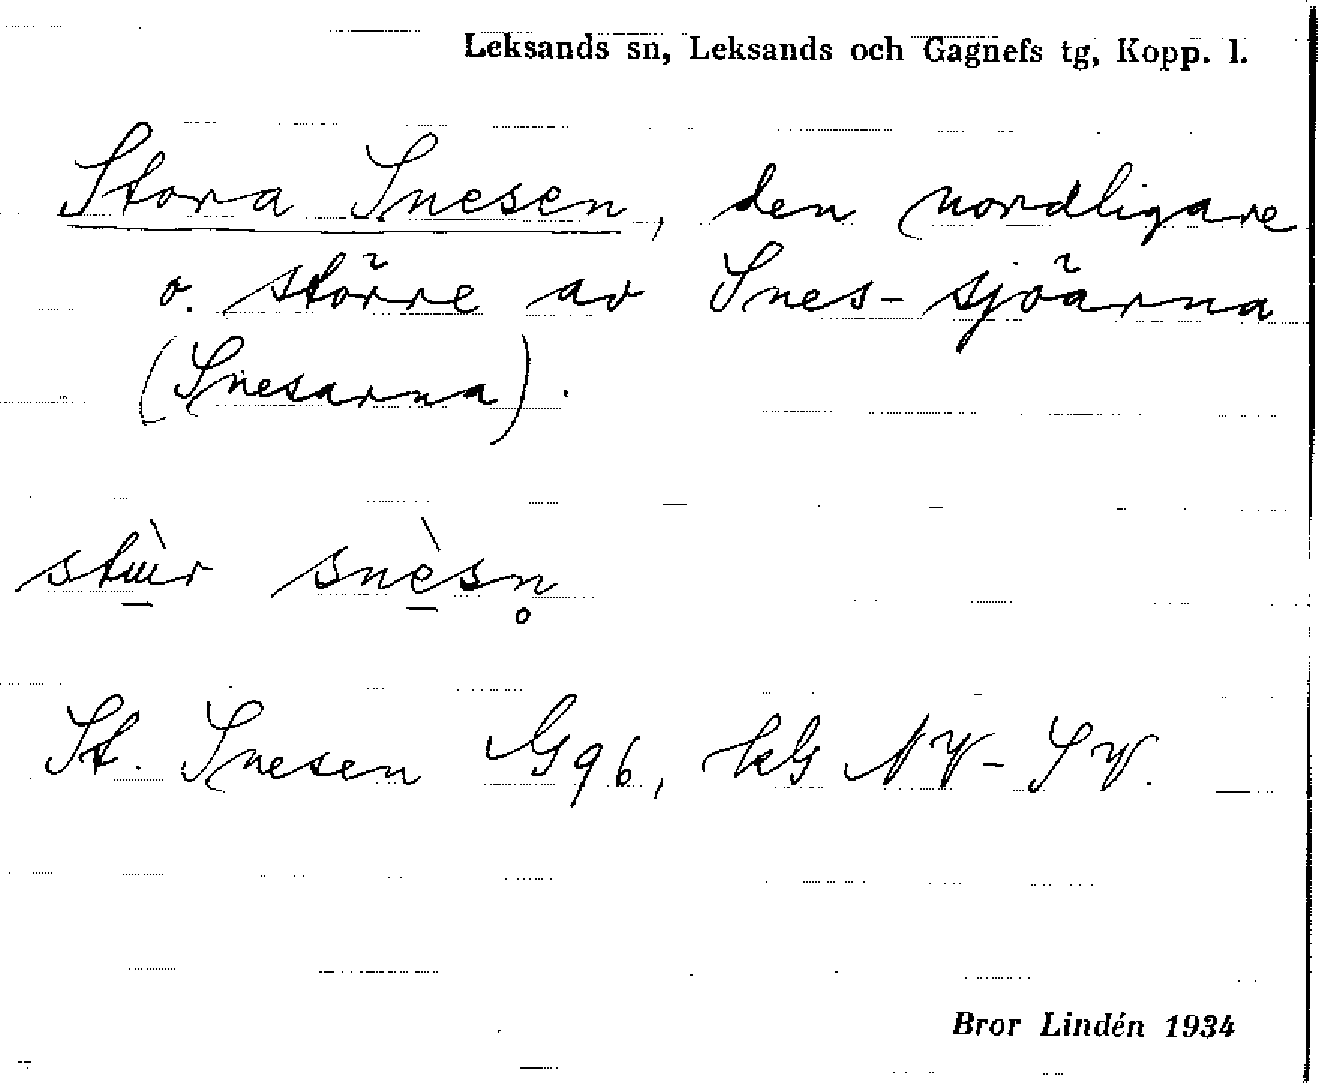 Leksands sn, Leksands och Gagnefs tg, Kopp. l.
Stora Snesen, den nordligare
o. större av Snes-sjöarna
(Snesarna).
snèsn̥
St. Snesen G9b, NV-SV.
Bror Lindén 1934